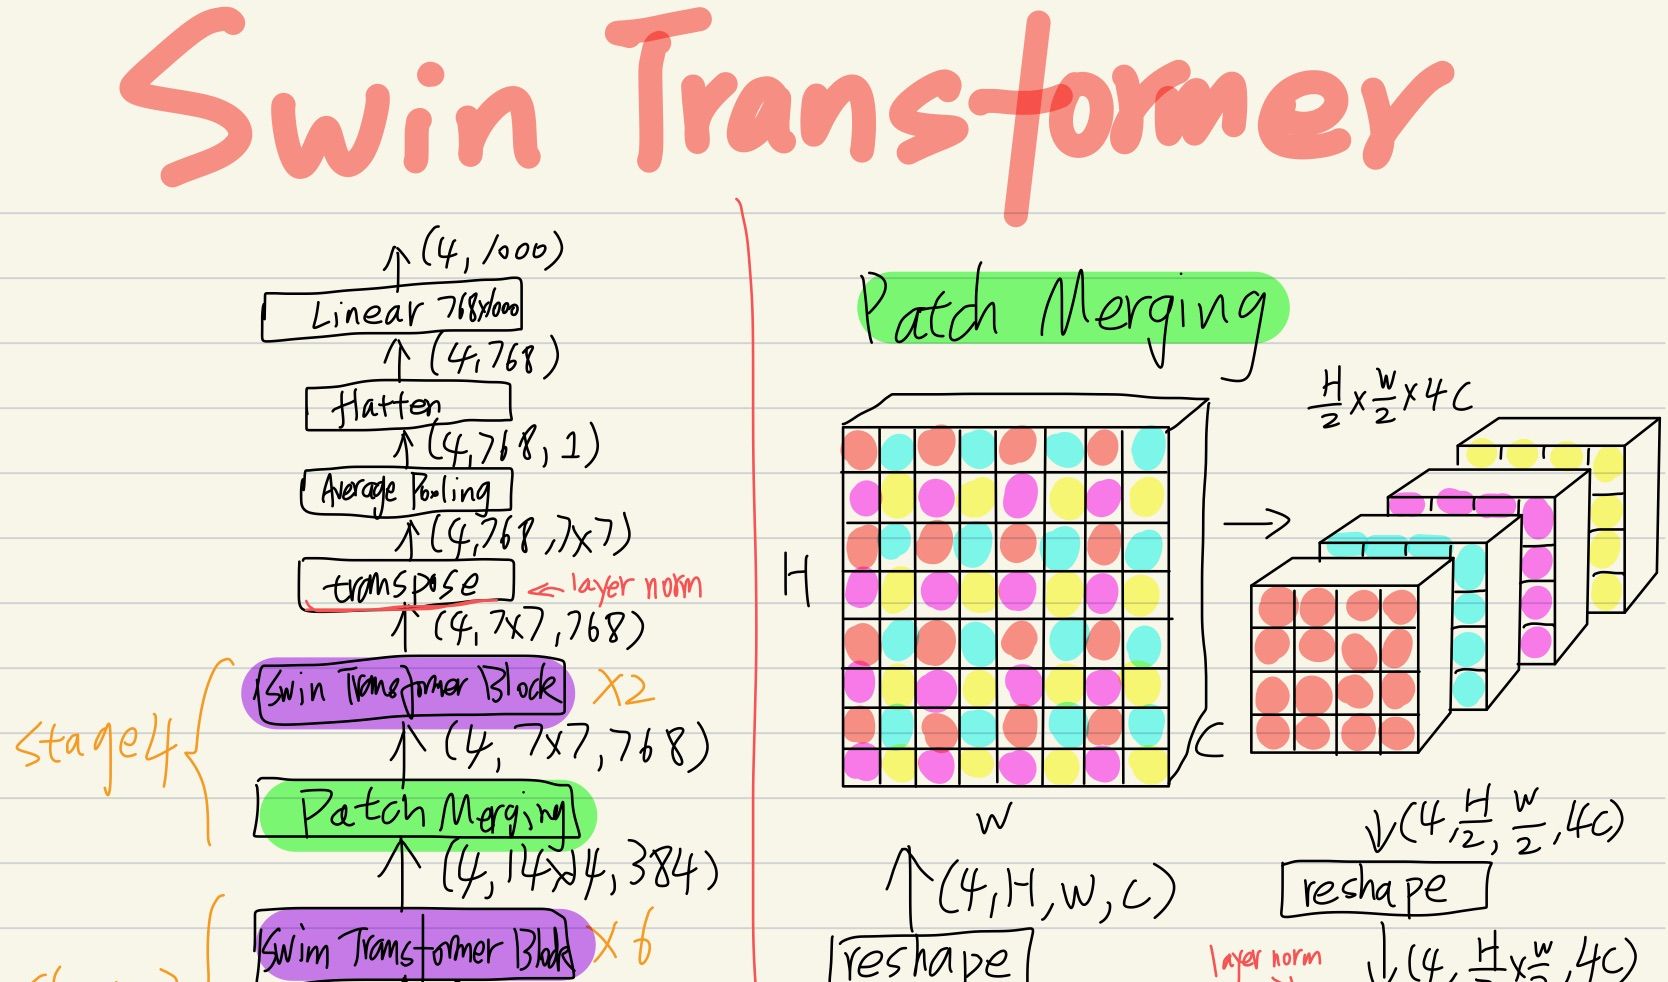 Swin Transformer
(4, 1000)
Linear 768x1000
(4,768)
flatten
(4,768,1)
Average Pooling
(4,768,7x7)
transpose ← layer norm
(4,7x7,768)
Swin Transformer Block x2
stage4
(4, 7x7,768)
Patch Merging
(4,14x14,384)
Swim Transformer Block x 6
Patch Merging
H/2 x W/2 x 4C
H
C
W
(4,H,W,C)
reshape
(4, H/2, W/2, 4C)
reshape
layer norm
(4, H/2 x W/2, 4C)